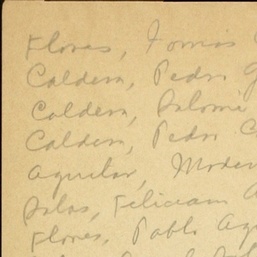 Flores, Tomás
Caldera, Pedro G
Caldera, Salomé
Caldera, Pedro C
Aguilar, Moder
Salas, Feliciano A
Flores, Pablo Ag